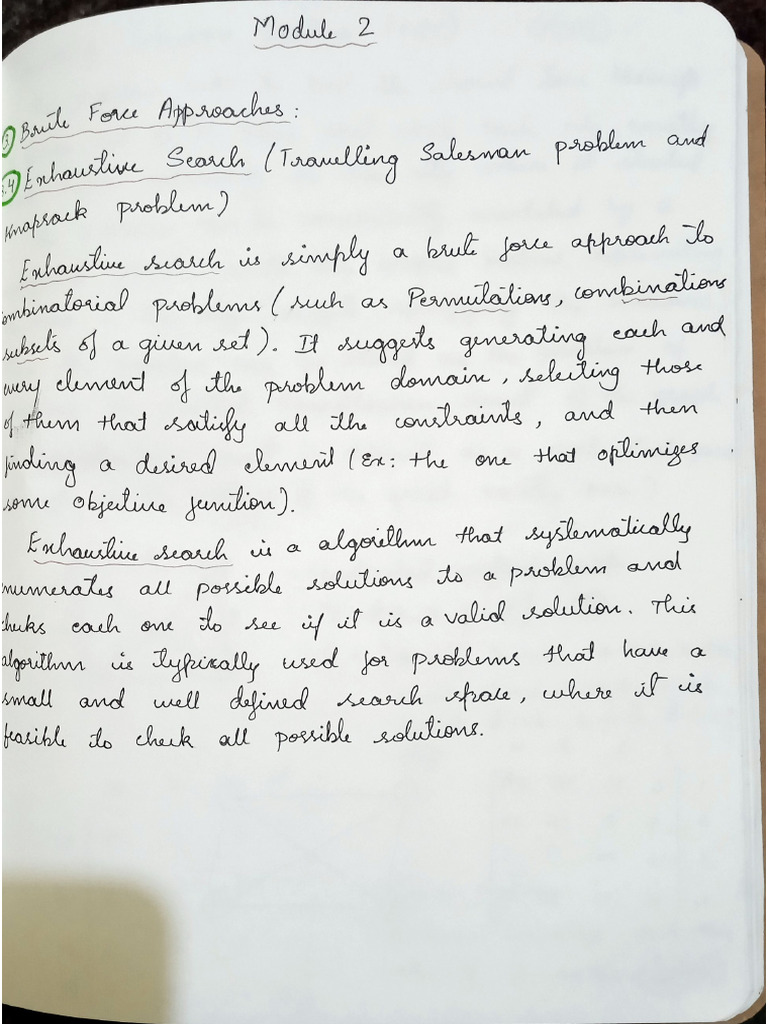 Module 2
3 Brute Force Approaches:
3.4 Exhaustive Search (Travelling Salesman problem and
Knapsack problem)
Exhaustive search is simply a brute force approach to
ombinatorial problems (such as Permutations, combinations
subsets of a given set). It suggests generating each and
every element of the problem domain, selecting those
of them that satisfy all the constraints, and then
finding a desired element (Ex: the one that optimizes
some objective function).
Exhaustive search is a algorithm that systematically
numerates all possible solutions to a problem and
checks each one to see if it is a valid solution. This
algorithm is typically used for problems that have a
small and well defined search space, where it is
feasible to check all possible solutions.